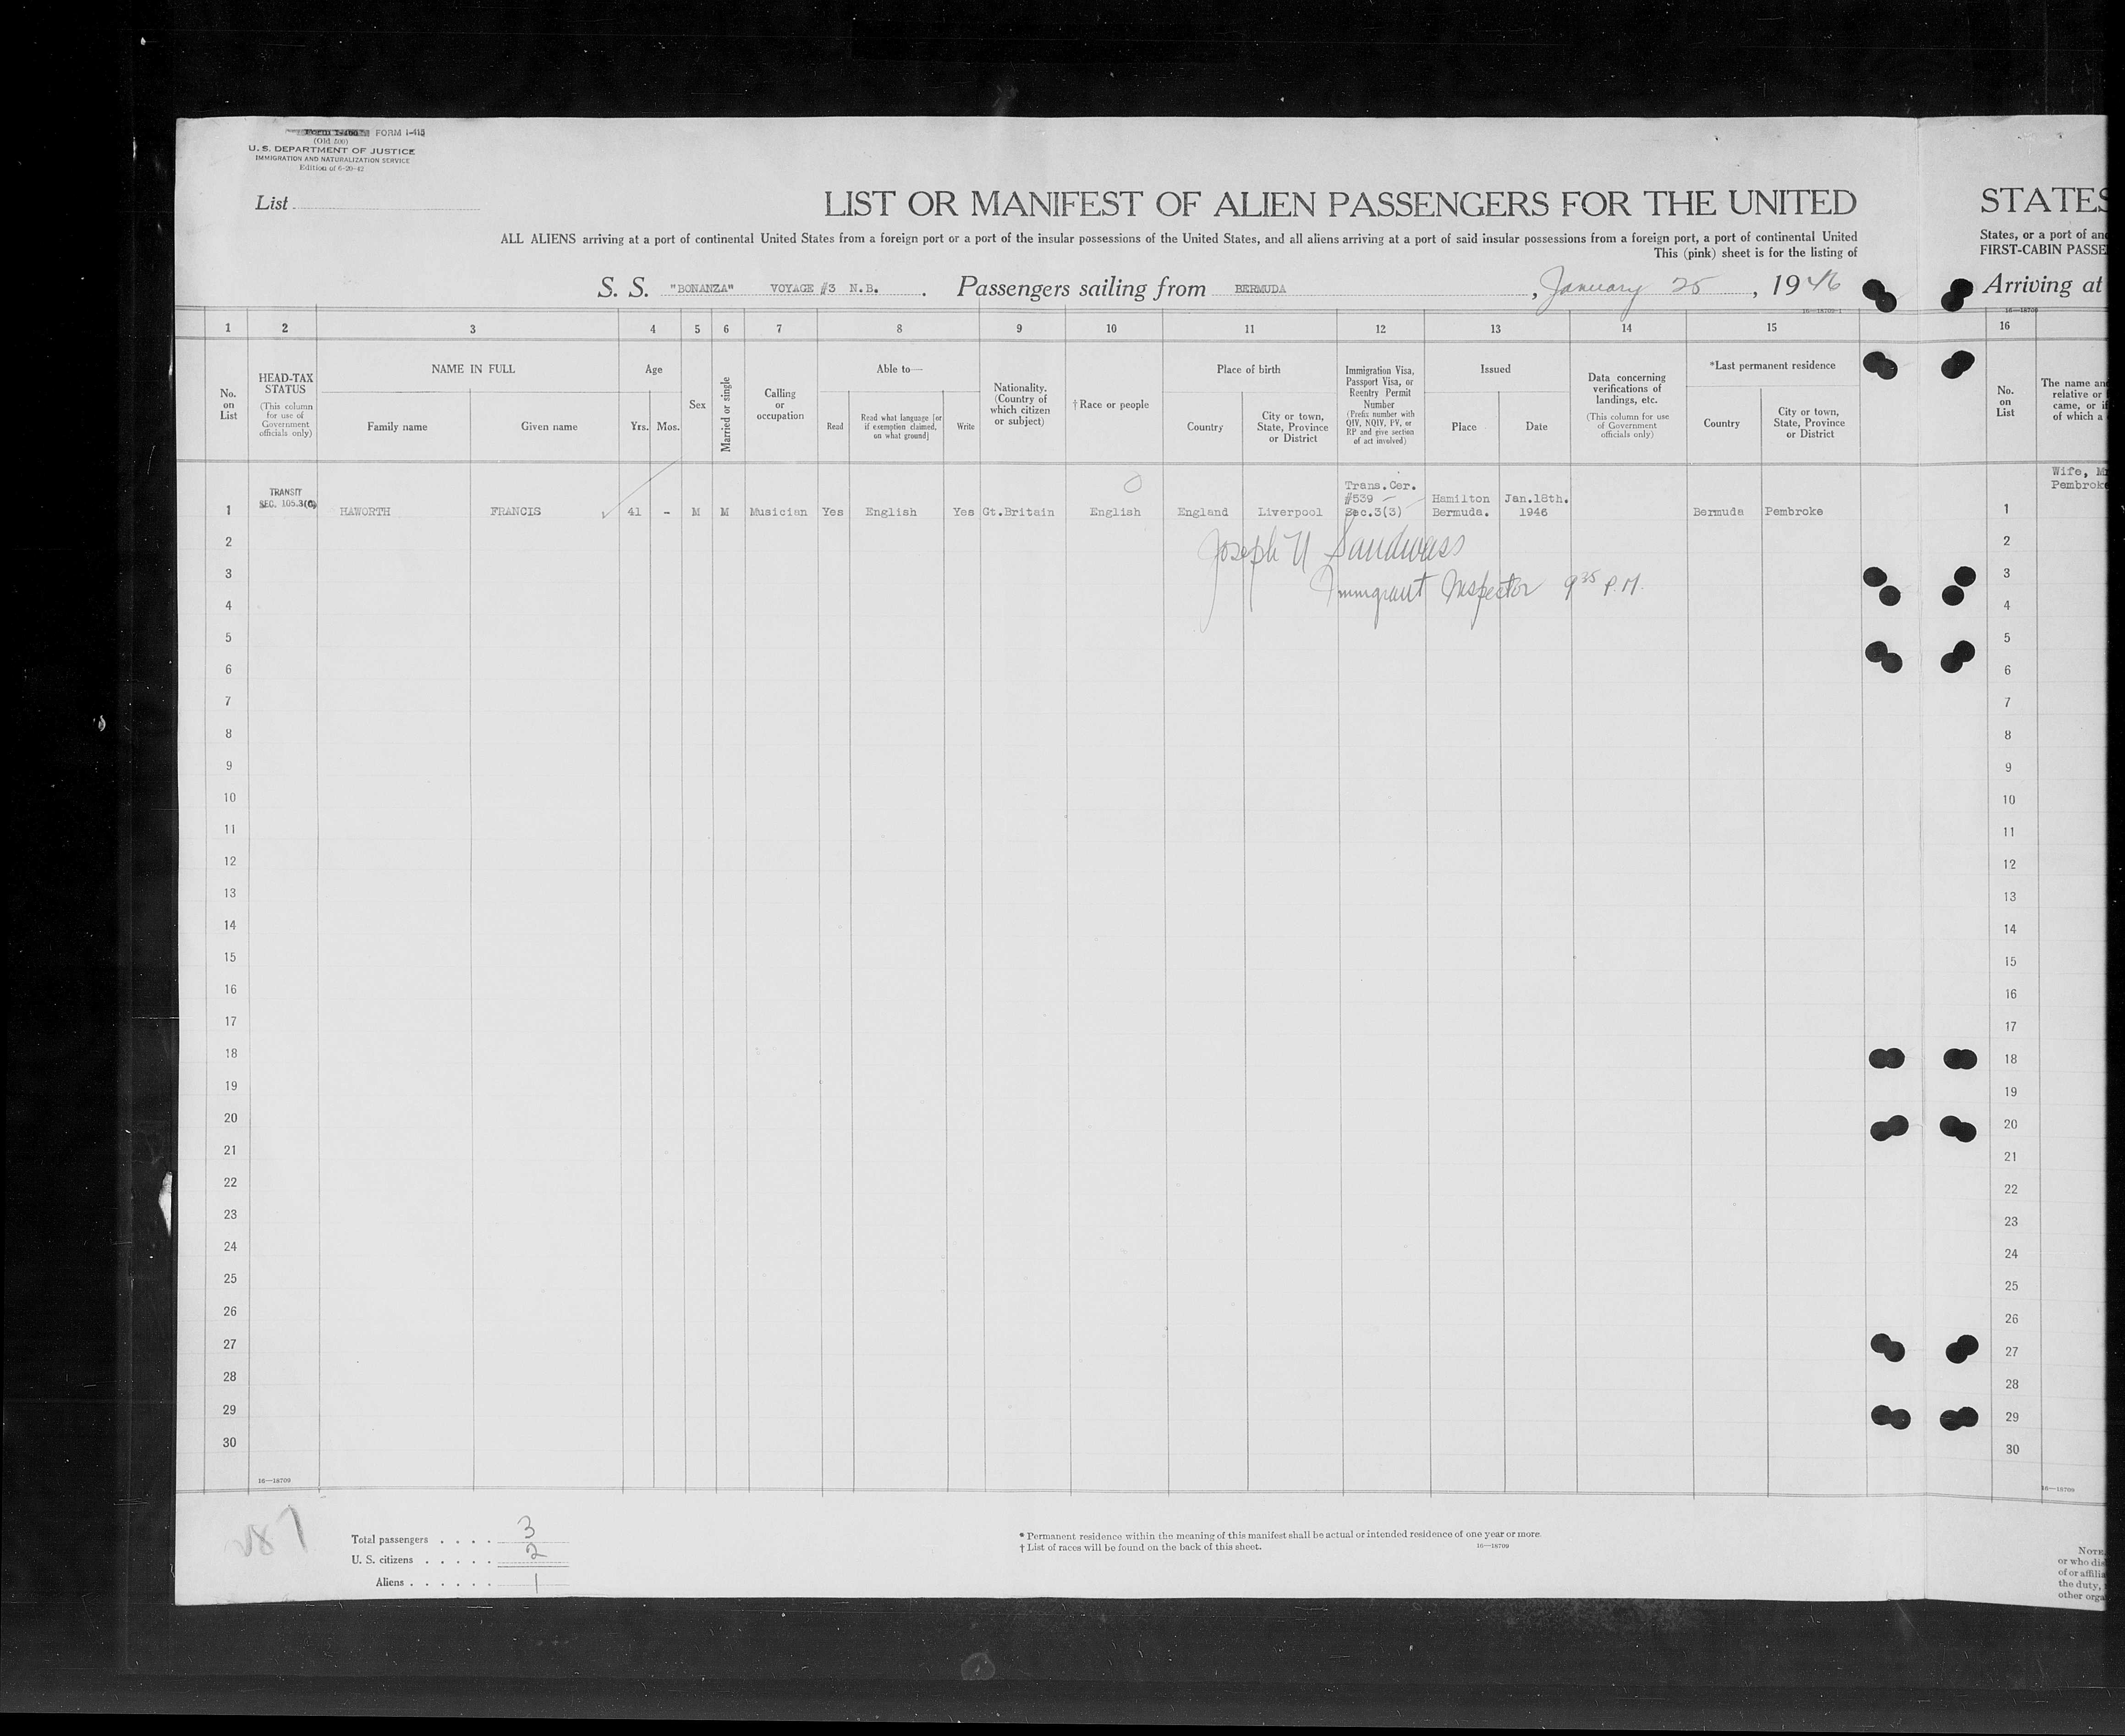 Form I-466 FORM I-415
(Old 500)
U. S. DEPARTMENT OF JUSTICE
IMMIGRATION AND NATURALIZATION SERVICE
Edition of 6-20-42
List
LIST OR MANIFEST OF ALIEN PASSENGERS FOR THE UNITED
STATES
ALL ALIENS arriving at a port of continental United States from a foreign port or a port of the insular possessions of the United States, and all aliens arriving at a port of said insular possessions from a foreign port, a port of continental United
States, or a port of
This (pink) sheet is for the listing of
FIRST-CABIN
S. S. "BONANZA" VOYAGE #3 N.B. . Passengers sailing from BERMUDA , January 25 , 1946
Arriving at
16—18709-1
16—18709
1 2 3 4 5 6 7 8 9 10 11 12 13 14 15 16
No. on List
HEAD-TAX STATUS
(This column for use of Government officials only)
NAME IN FULL
Family name
Given name
Age
Yrs. Mos.
Sex
Married or single
Calling or occupation
Able to—
Read
Read what language [or if exemption claimed, on what ground]
Write
Nationality. (Country of which citizen or subject)
†Race or people
Place of birth
Country
City or town, State, Province or District
Immigration Visa, Passport Visa, or Reentry Permit Number
(Prefix number with QIV, NQIV, PV, or RP and give section of act involved)
Issued
Place
Date
Data concerning verifications of landings, etc.
(This column for use of Government officials only)
*Last permanent residence
Country
City or town, State, Province or District
No. on List
The name
relative or
came, or if
of which a
TRANSIT
SEC. 105.3(C)
1 HAWORTH FRANCIS 41 - M M Musician Yes English Yes Gt.Britain English England Liverpool Trans.Cer. #539 Sec.3(3) Hamilton Bermuda. Jan.18th. 1946 Bermuda Pembroke 1 Wife,
Joseph
Immigrant Inspector 9 35 P.M.
2 2
3 3
4 4
5 5
6 6
7 7
8 8
9 9
10 10
11 11
12 12
13 13
14 14
15 15
16 16
17 17
18 18
19 19
20 20
21 21
22 22
23 23
24 24
25 25
26 26
27 27
28 28
29 29
30 30
16—18709
16—18709
287
Total passengers . . . . 3
U. S. citizens . . . . . 2
Aliens . . . . . . 1
* Permanent residence within the meaning of this manifest shall be actual or intended residence of one year or more.
† List of races will be found on the back of this sheet.
16—18709
NOTE
or who
of or
the duty,
other